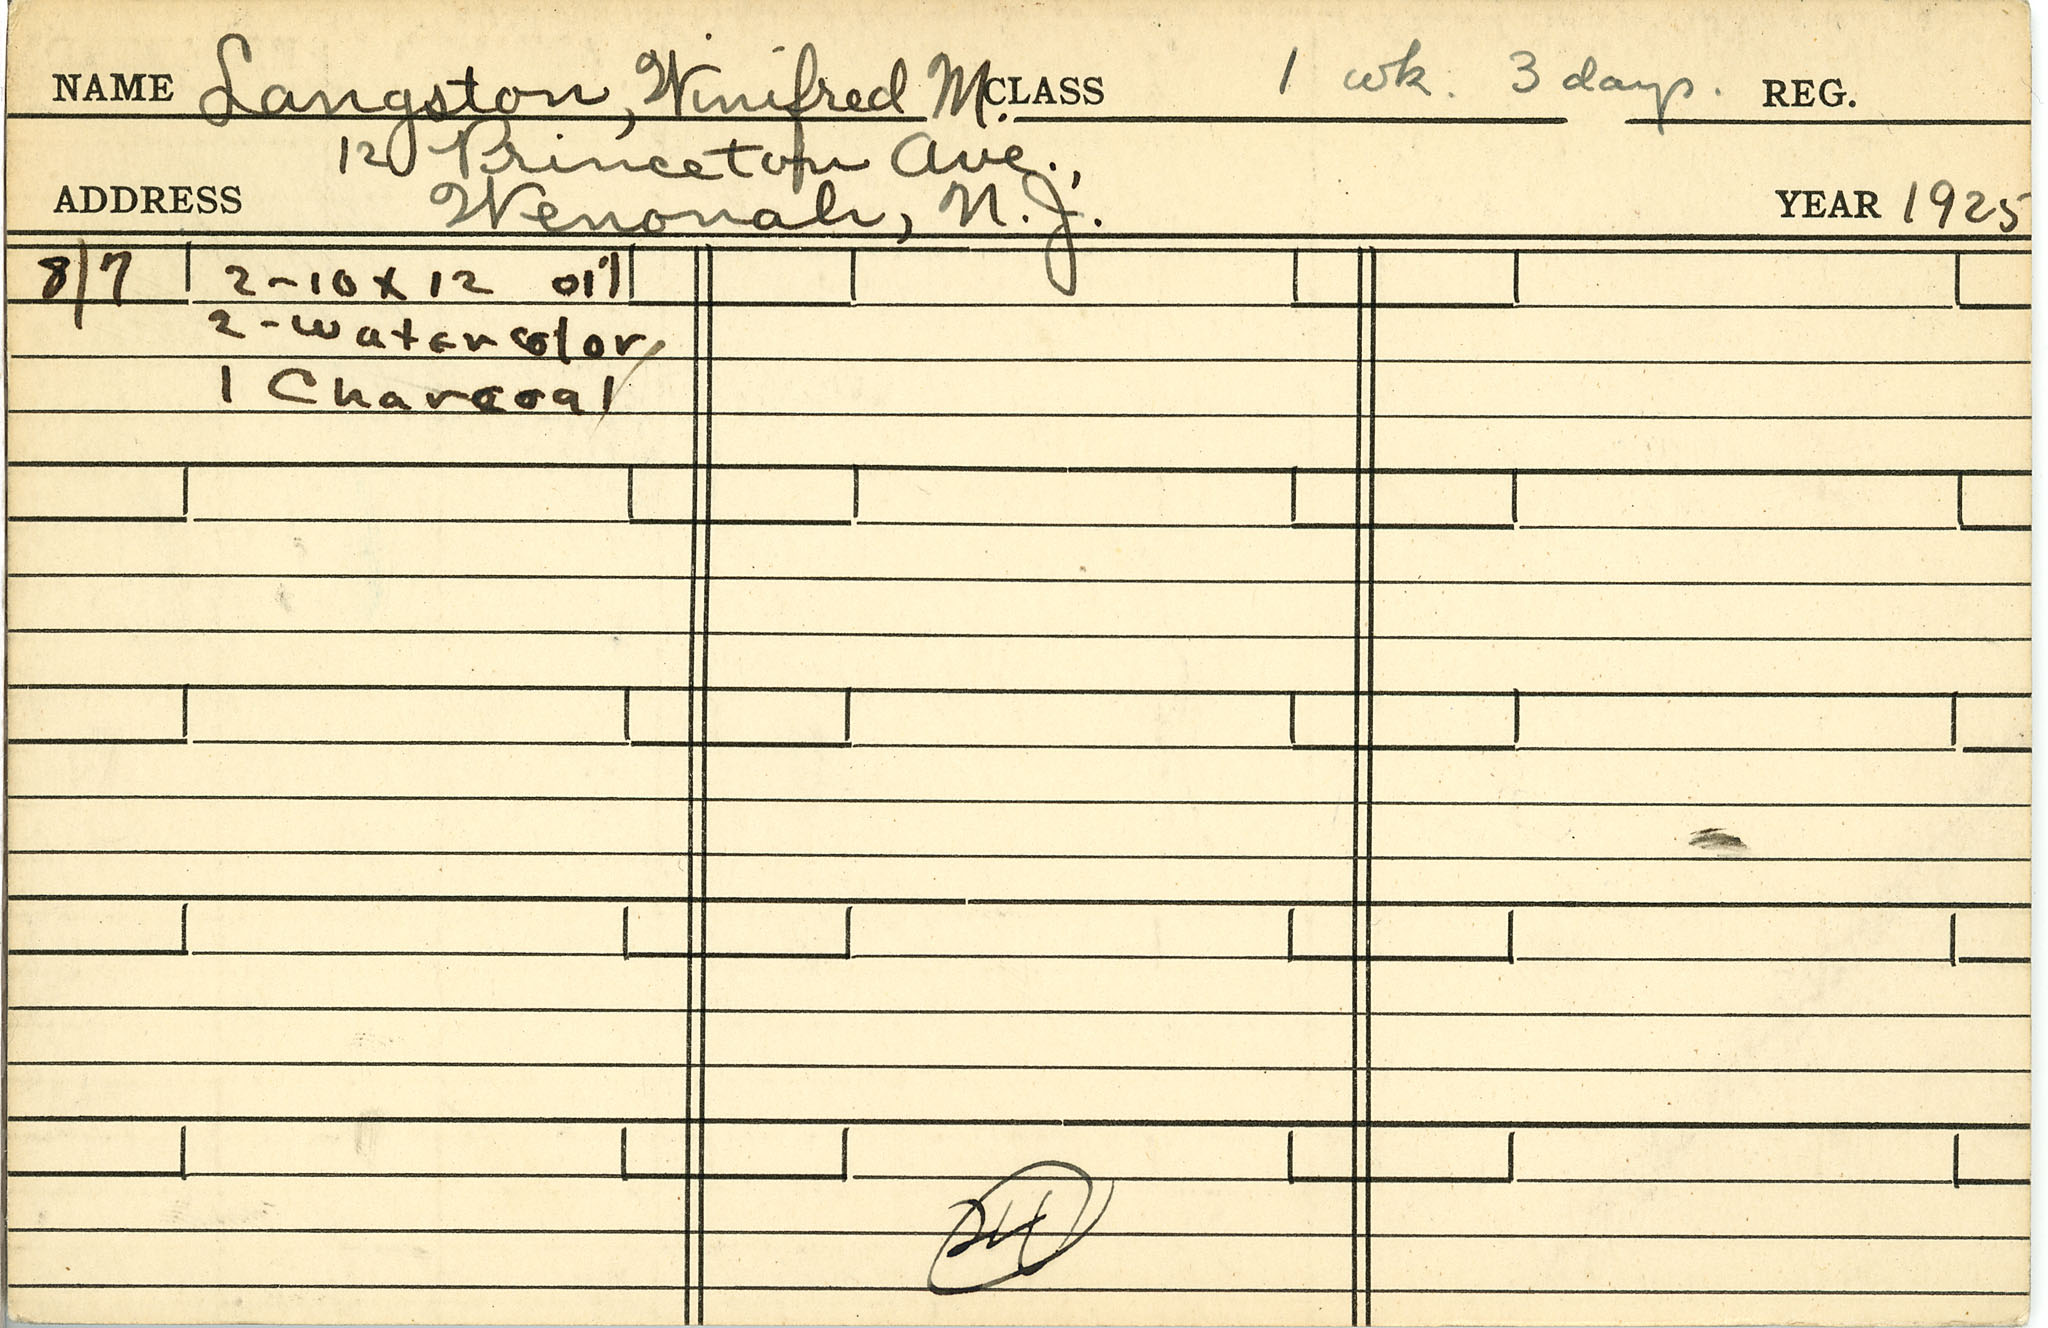 NAME Langston, Winifred M. CLASS 1 wk. 3 days. REG.
12 Princeton Ave.,
ADDRESS Wenonah, N.J. YEAR 1925
8/7 2-10 x 12 oil
2-watercolor
1 Charcoal
24